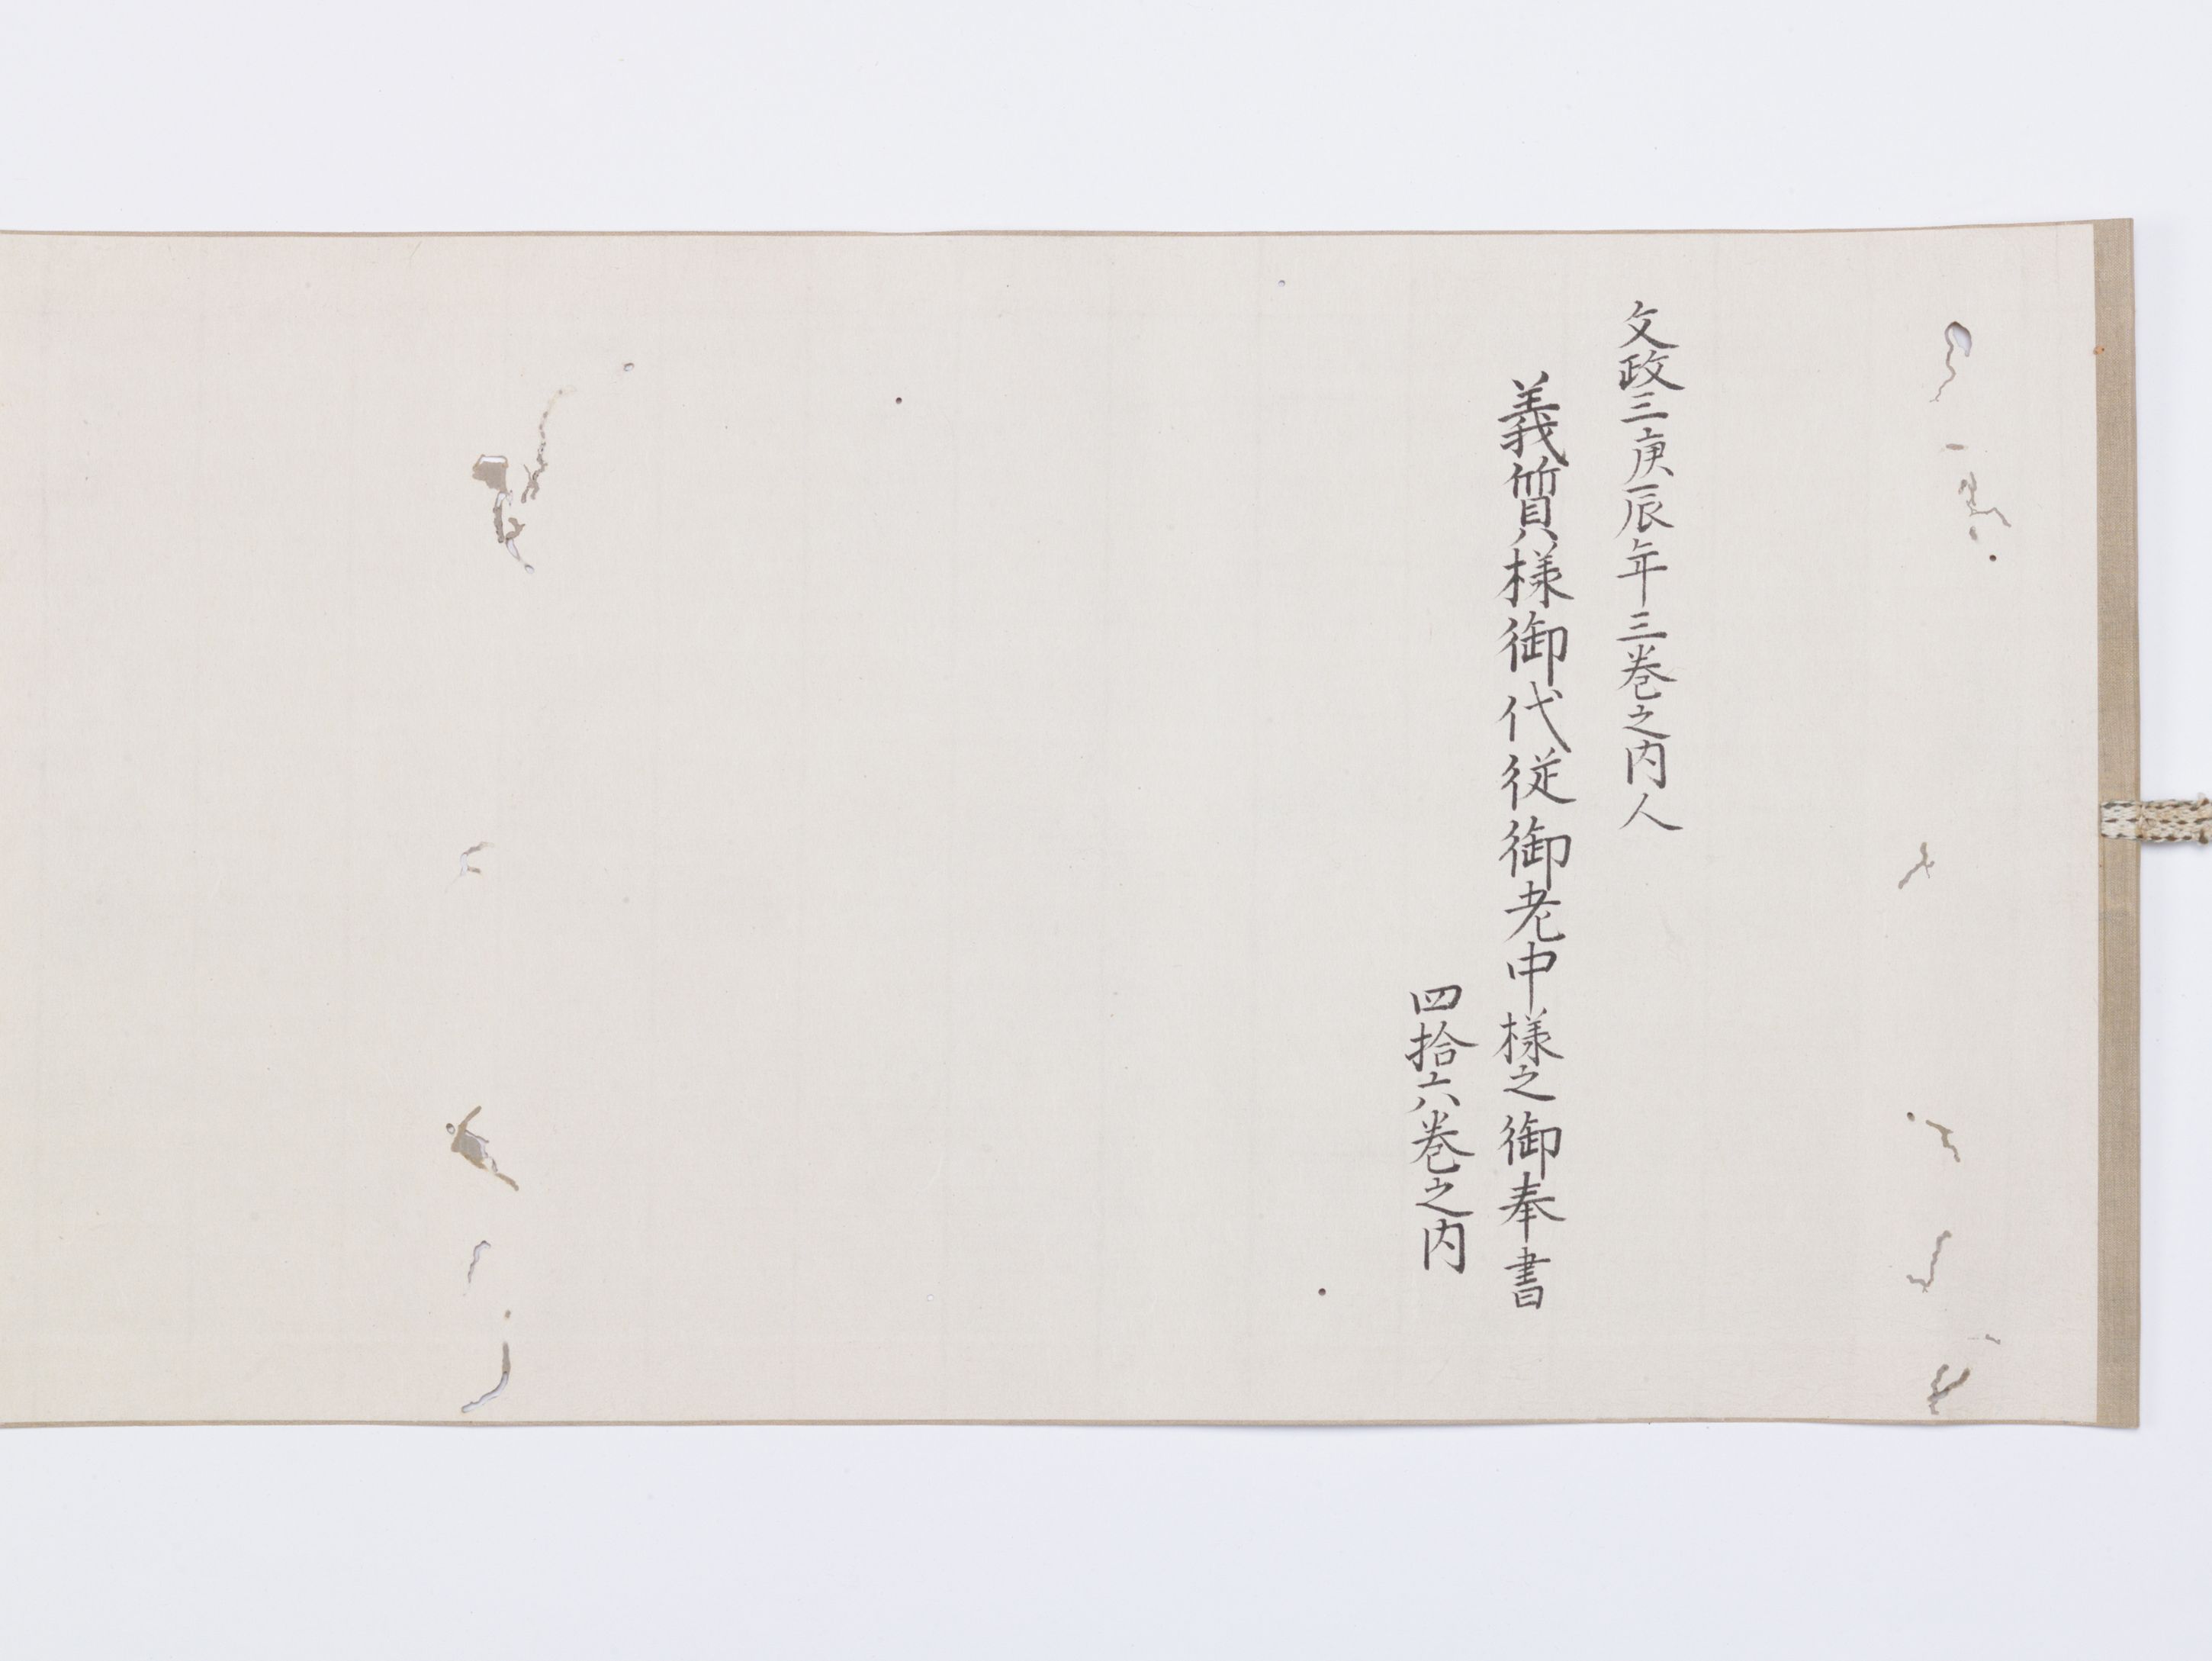 文政三庚辰年三巻之内人
義質様御代従御老中様之御奉書
四拾六巻之内